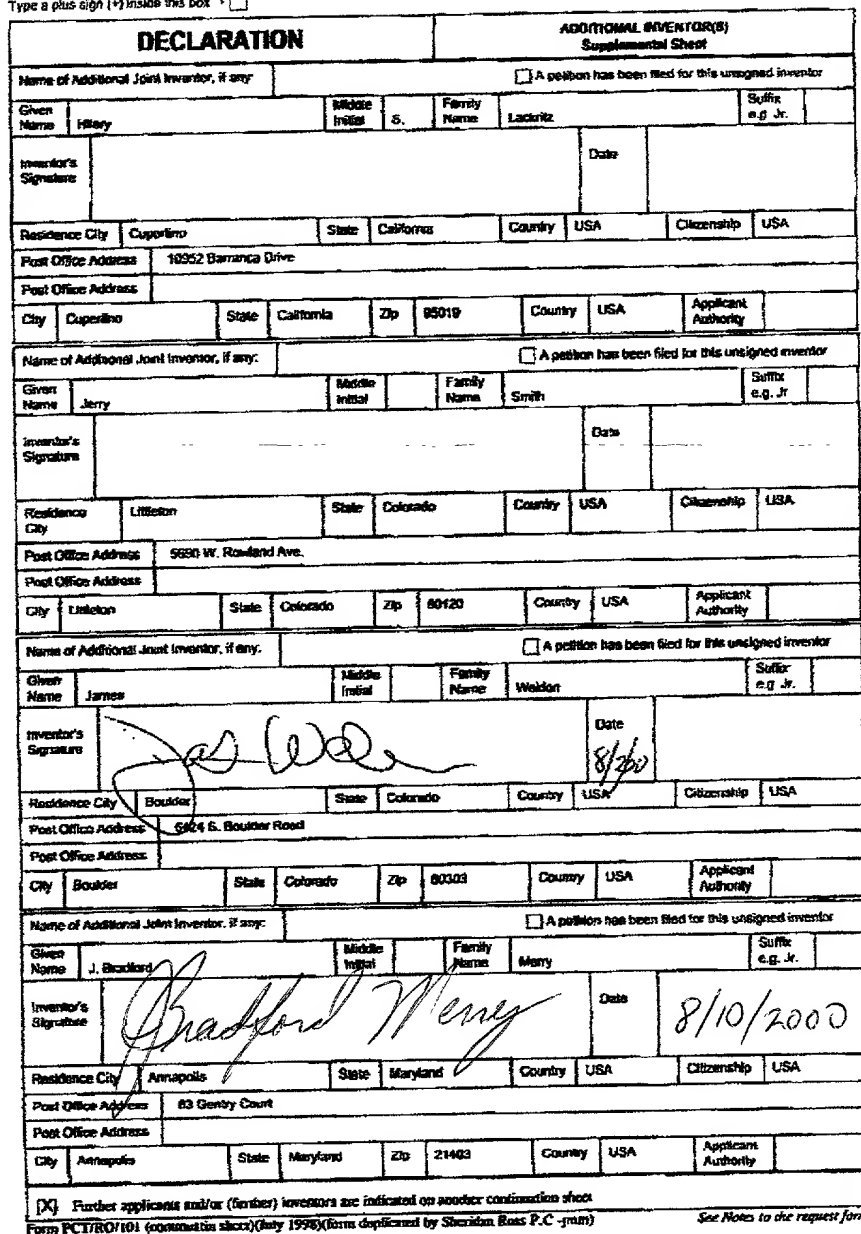 Type a plus sign (+) inside this box
DECLARATION
ADDITIONAL INVENTOR(S)
Supplemental Sheet
Name of Additional Joint Inventor, if any:
A petition has been filed for this unsigned inventor
Given Name Hilary Middle Initial S. Family Name Lackritz Suffix e.g. Jr.
Inventor's Signature Date
Residence City Cupertino State California Country USA Citizenship USA
Post Office Address 10952 Barranca Drive
Post Office Address
City Cupertino State California Zip 95019 Country USA Applicant Authority
Name of Additional Joint Inventor, if any:
A petition has been filed for this unsigned inventor
Given Name Jerry Middle Initial Family Name Smith Suffix e.g. Jr
Inventor's Signature Date
Residence City Littleton State Colorado Country USA Citizenship USA
Post Office Address 5690 W. Rowland Ave.
Post Office Address
City Littleton State Colorado Zip 80120 Country USA Applicant Authority
Name of Additional Joint Inventor, if any:
A petition has been filed for this unsigned inventor
Given Name James Middle Initial Family Name Weldon Suffix e.g. Jr.
Inventor's Signature Date
Residence City Boulder State Colorado Country USA Citizenship USA
Post Office Address S. Boulder Road
Post Office Address
City Boulder State Colorado Zip 80303 Country USA Applicant Authority
Name of Additional Joint Inventor, if any:
A petition has been filed for this unsigned inventor
Given Name J. Bradford Middle Initial Family Name Merry Suffix e.g. Jr.
Inventor's Signature J Bradford Merry Date 8/10/2000
Residence City Annapolis State Maryland Country USA Citizenship USA
Post Office Address 83 Gentry Court
Post Office Address
City Annapolis State Maryland Zip 21403 Country USA Applicant Authority
[X] Further applicants and/or (further) inventors are indicated on another continuation sheet
Form PCT/RO/101 (continuation sheet)(July 1998)(form duplicated by Sheridan Ross P.C -jmm) See Notes to the request form